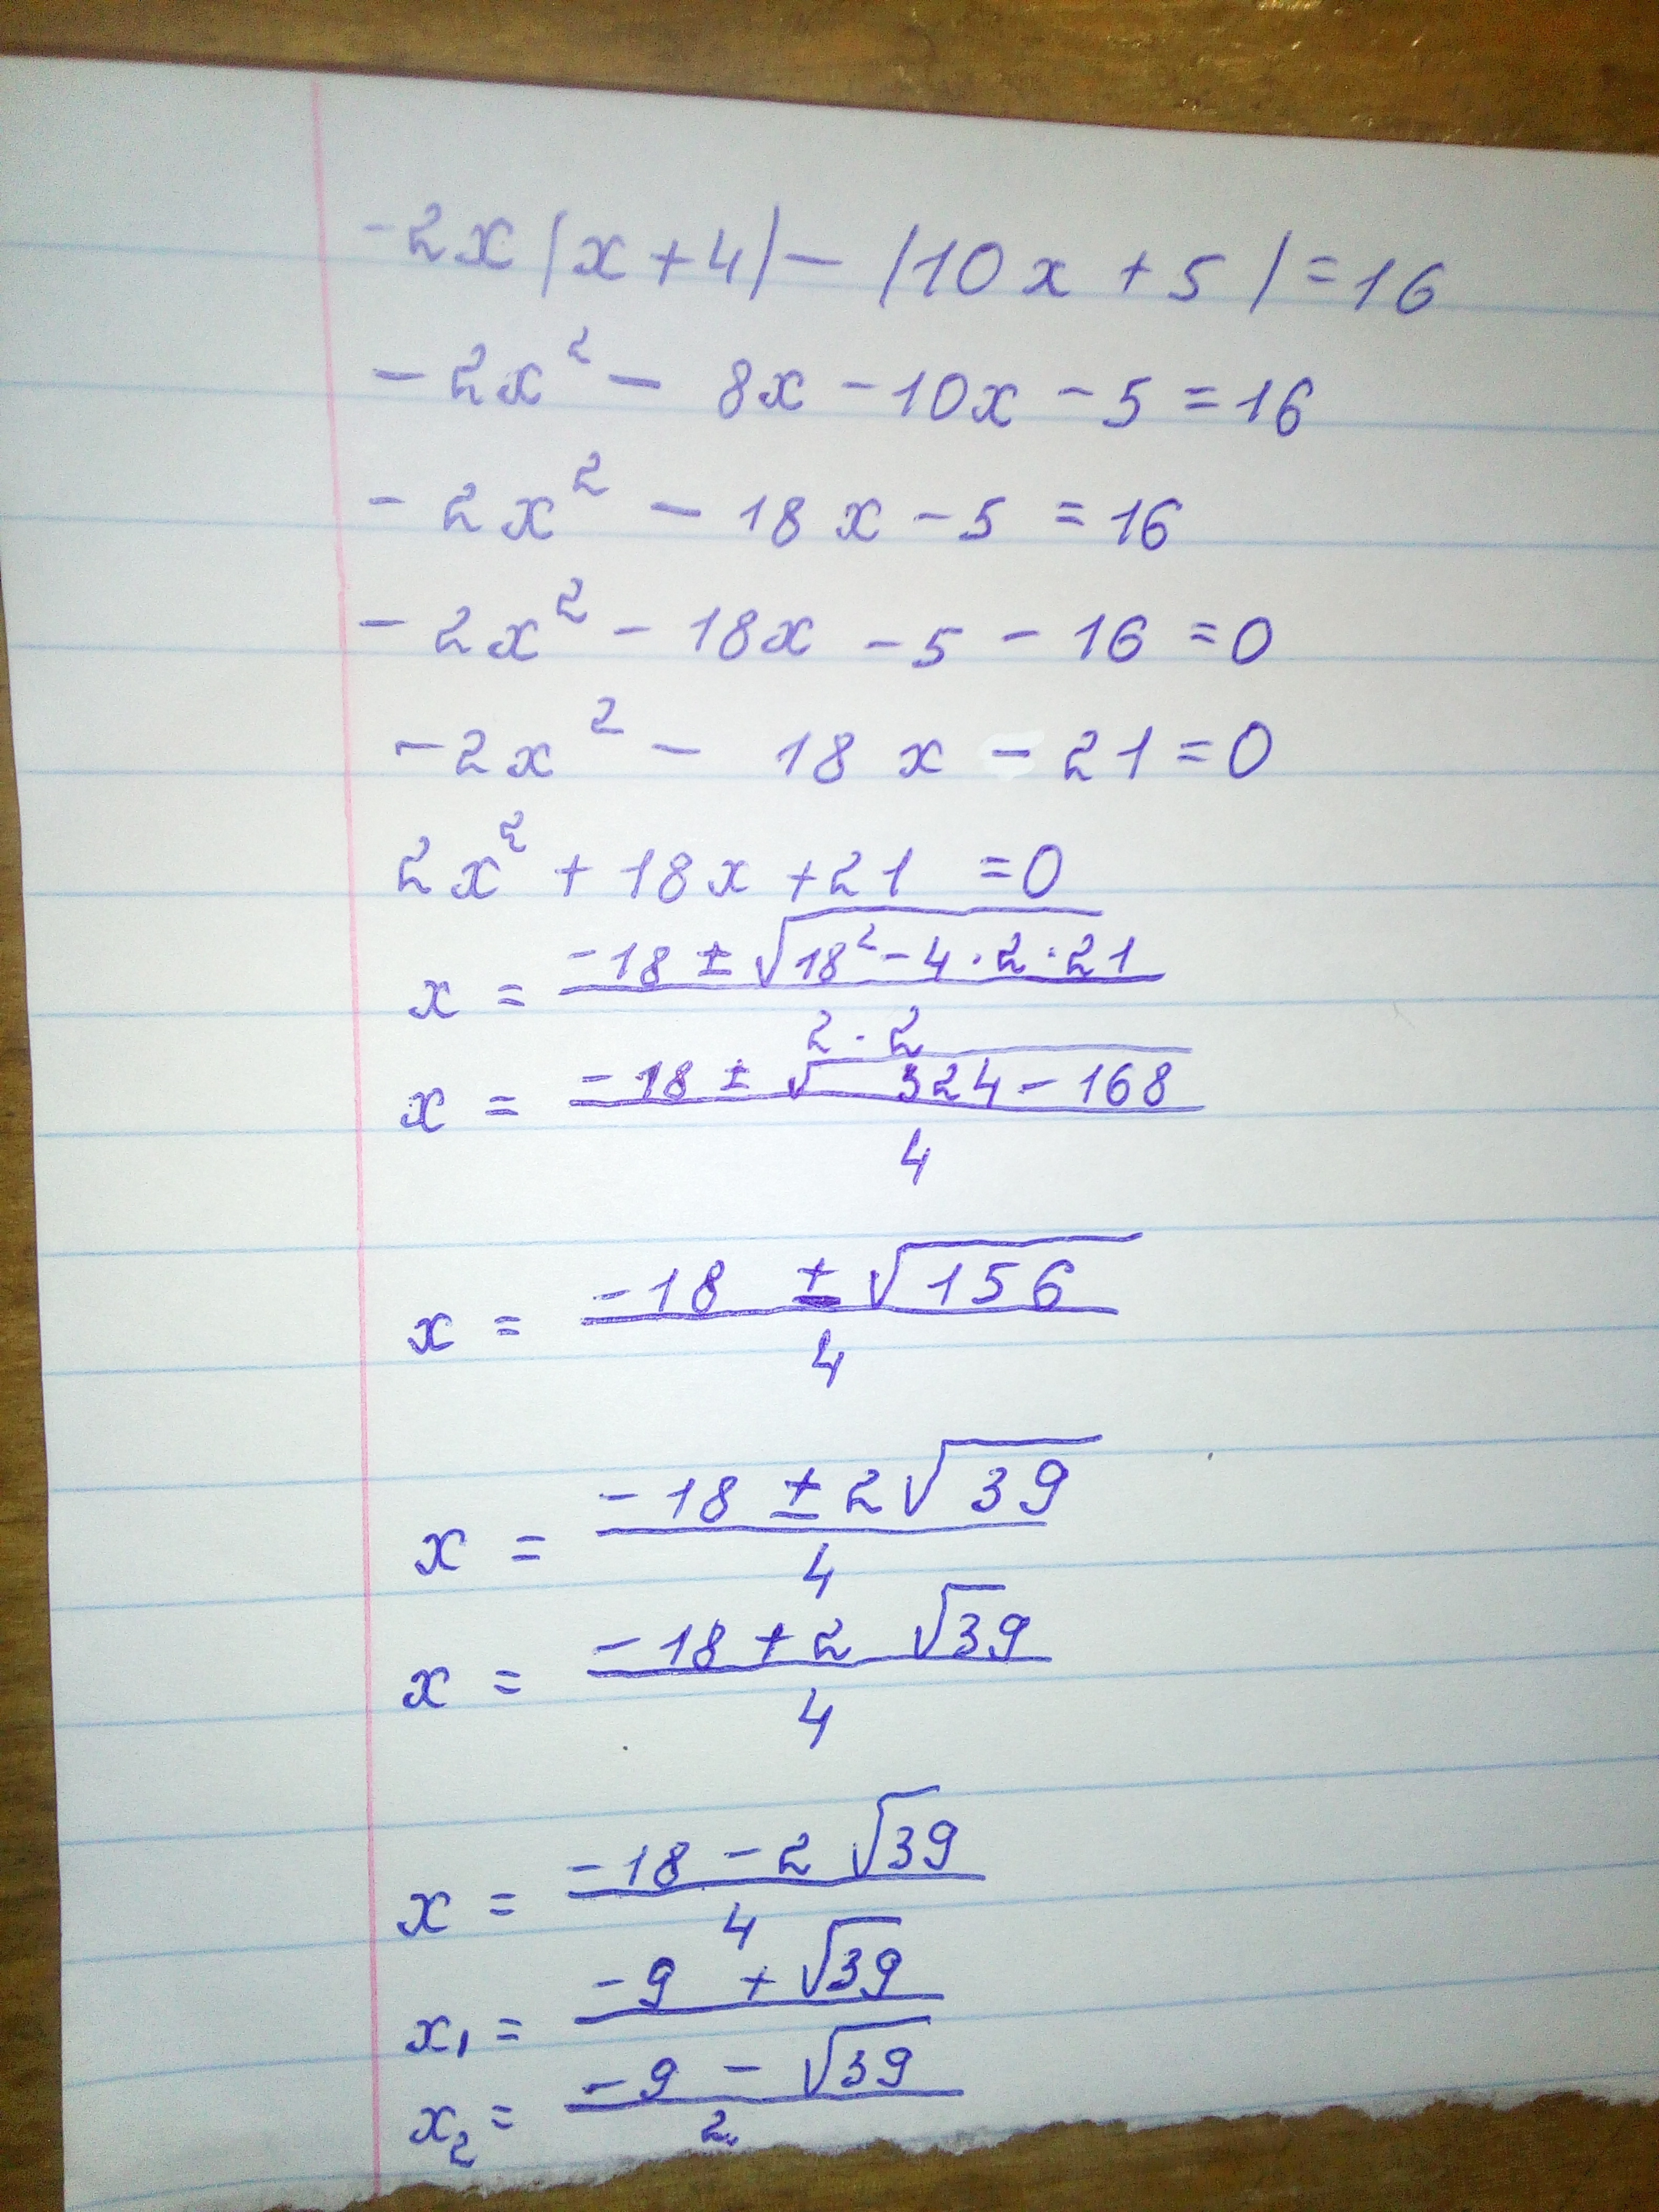 -2x(x+4)-(10x+5)=16
-2x²-8x-10x-5=16
-2x²-18x-5=16
-2x²-18x-5-16=0
-2x²-18x-21=0
2x²+18x+21=0
x = (-18 ± √(18²-4·2·21))/(2·2)
x = (-18 ± √(324-168))/4
x = (-18 ± √156)/4
x = (-18 ± 2√39)/4
x = (-18+2√39)/4
x = (-18-2√39)/4
x₁ = -9+√39
x₂ = (-9-√39)/2